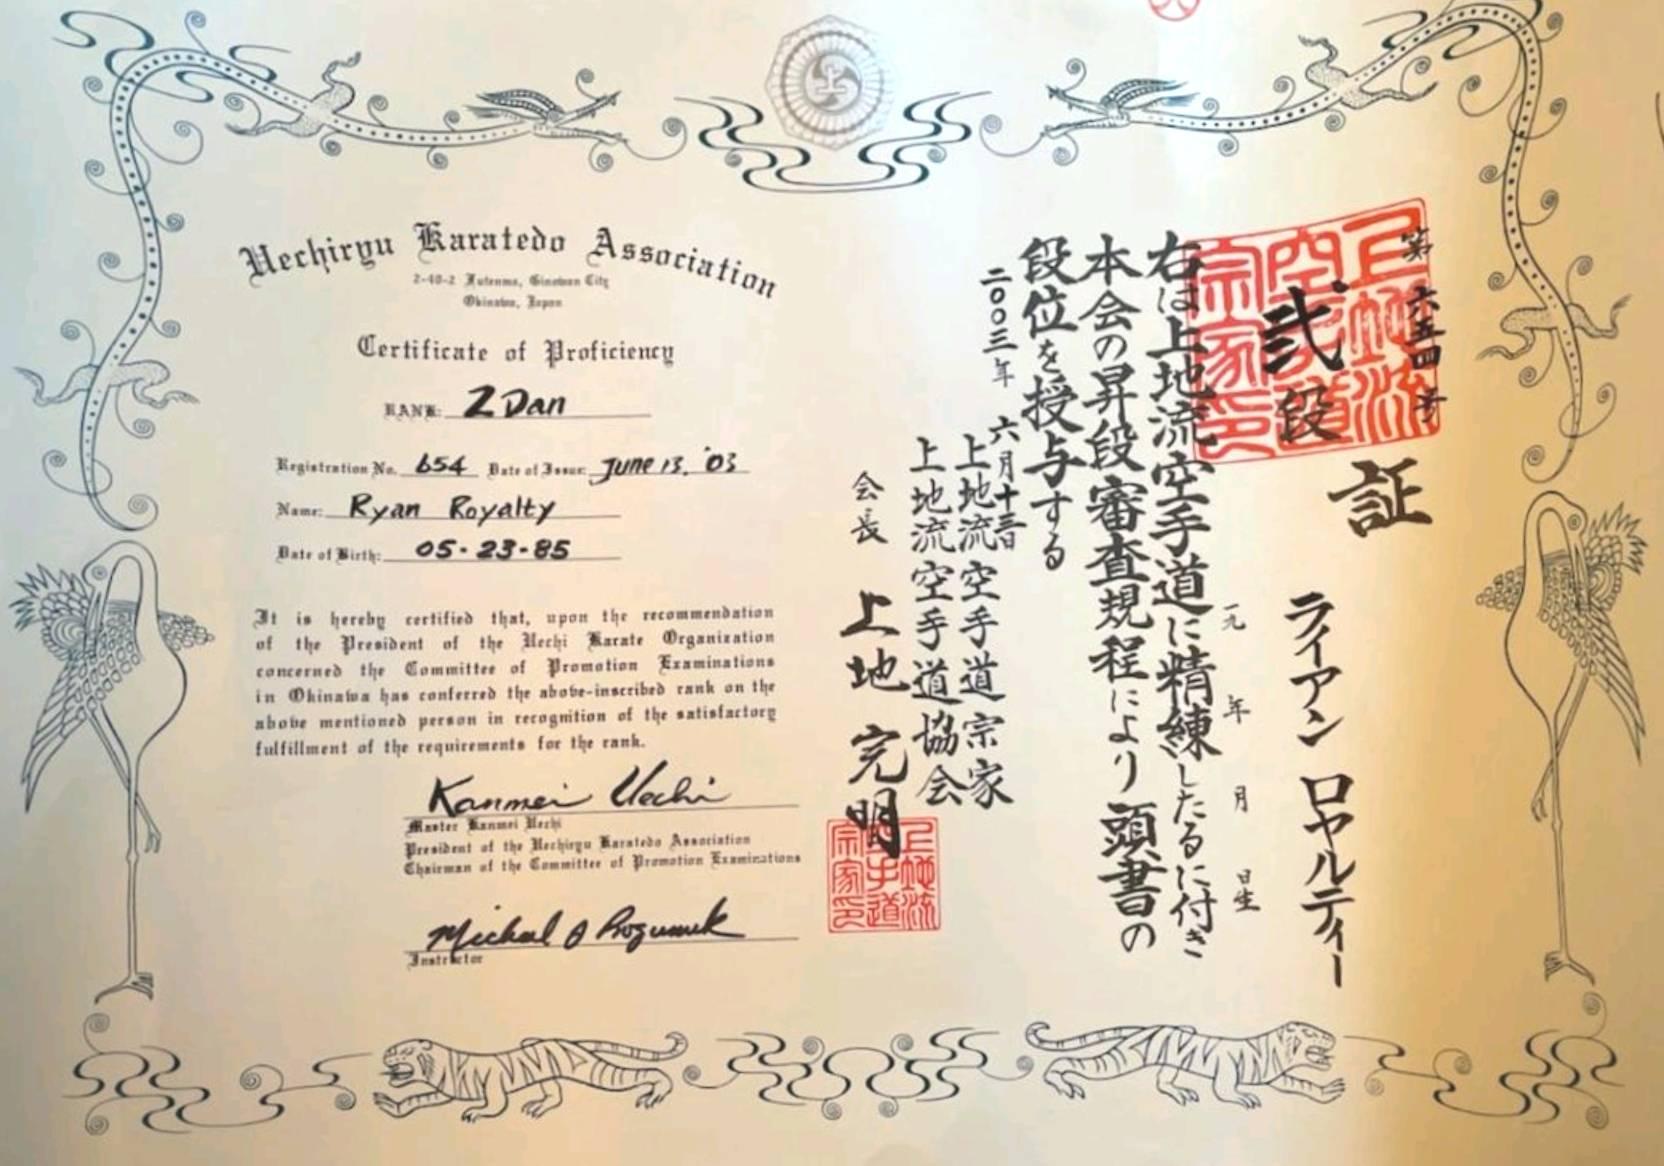 上
Uechiryu Karatedo Association
2-40-2 Futenma, Ginowan City
Okinawa, Japan
Certificate of Proficiency
RANK: 2 Dan
Registration No. 654 Date of Issue: June 13, '03
Name: Ryan Royalty
Date of Birth: 05-23-85
It is hereby certified that, upon the recommendation
of the President of the Uechi Karate Organization
concerned the Committee of Promotion Examinations
in Okinawa has conferred the above-inscribed rank on the
above mentioned person in recognition of the satisfactory
fulfillment of the requirements for the rank.
Kanmei Uechi
Master Kanmei Uechi
President of the Uechiryu Karatedo Association
Chairman of the Committee of Promotion Examinations
Instructor
第六五四号
証
弐段
ライアン ロヤルティー
一九 年 月 日生
右は上地流空手道に精練したるに付き
本会の昇段審査規程により頭書の
段位を授与する
二〇〇三年 六月十三日
上地流空手道宗家
上地流空手道協会
会長 上地完明
上地流
空手道
宗家印
上地流
空手道
宗家印